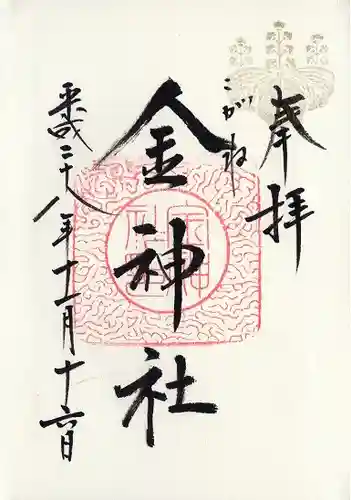 奉拝
こがね
金神社
平成二十八年十一月十六日